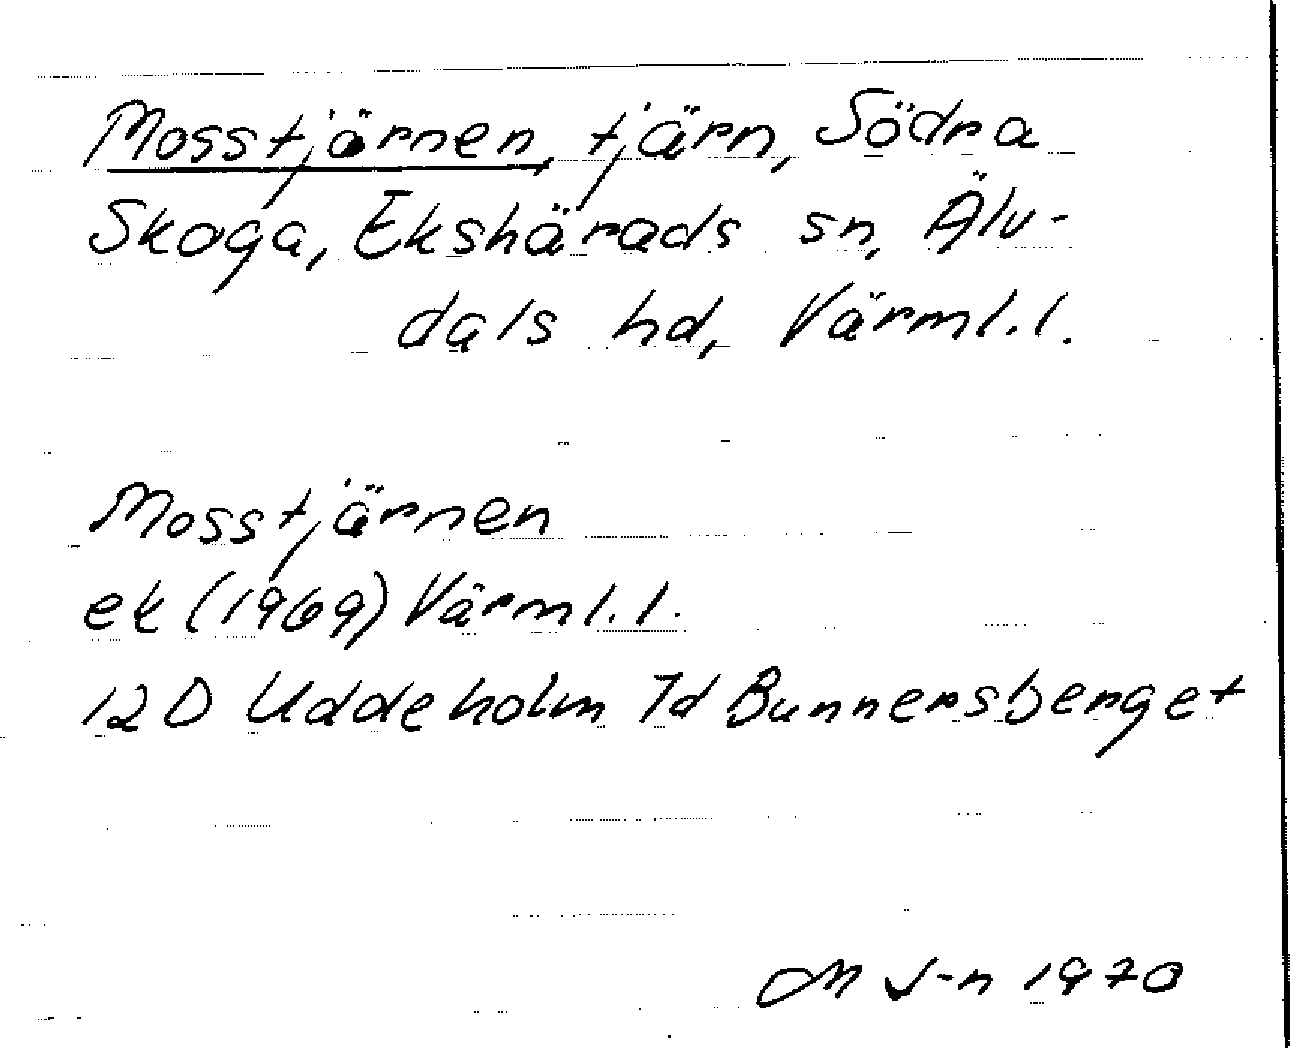 Mosstjärnen, tjärn, Södra
Skoga, Ekshärads sn, Älv-
dals hd, Värml.l.
Mosstjärnen
ek (1969) Värml.l.
12D Uddeholm 7d Bunnersberget
M J-n 1970